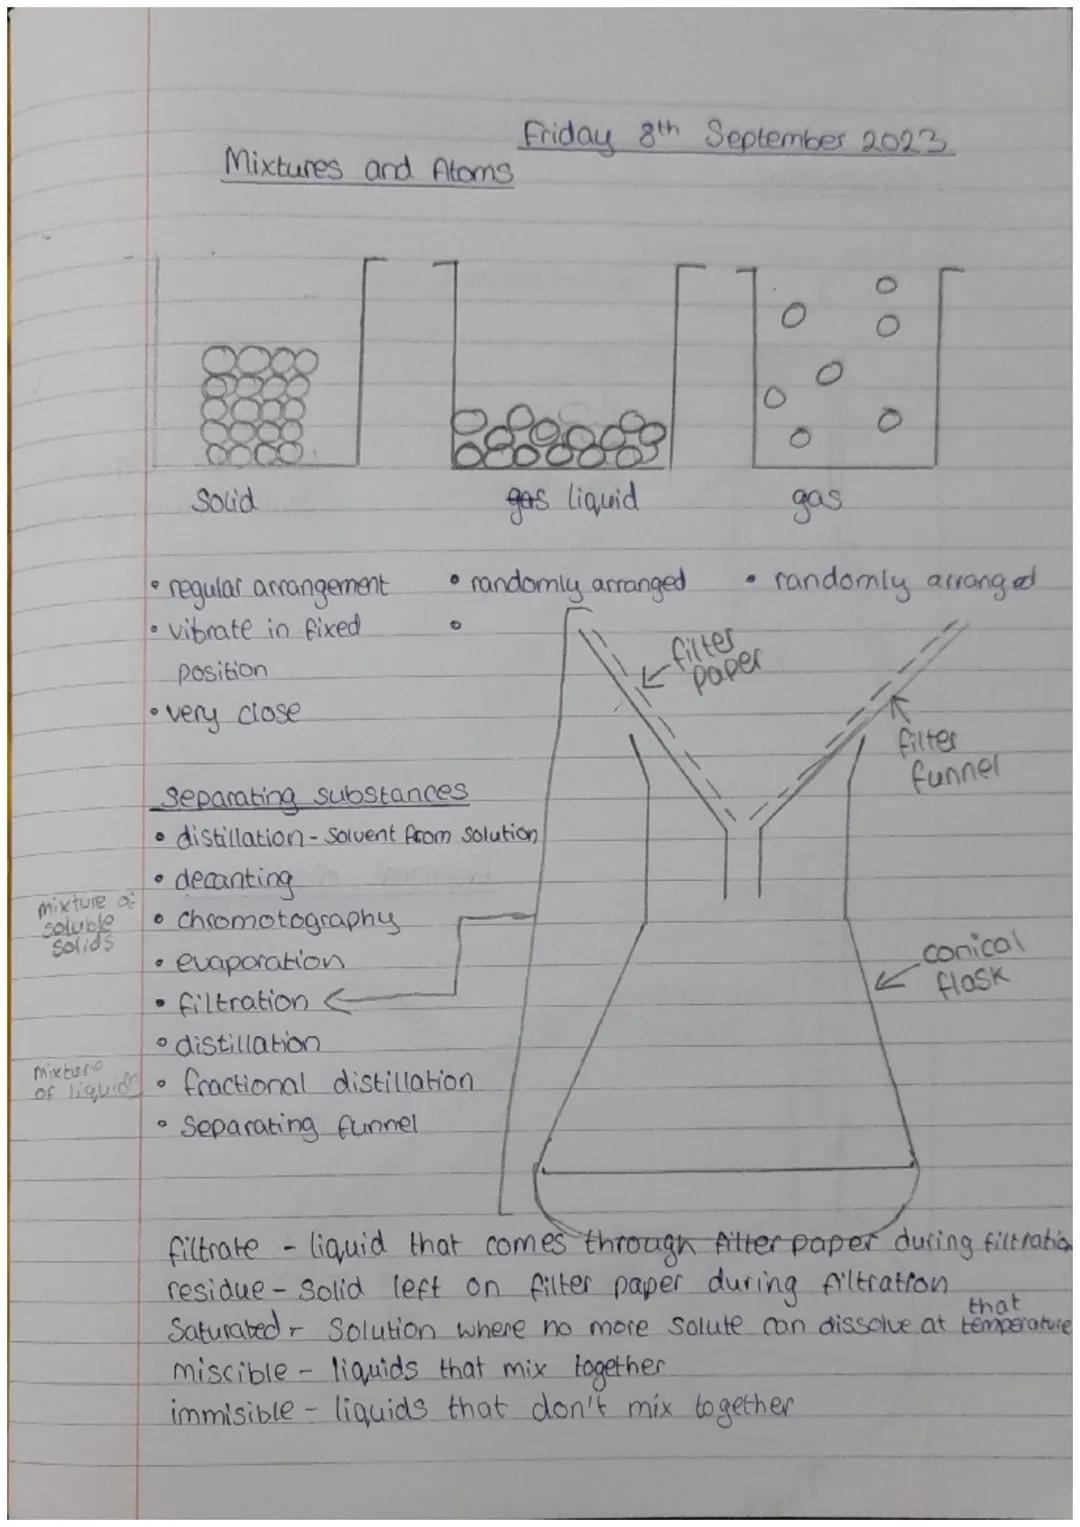 Friday 8th September 2023
Mixtures and Atoms
Solid
gas liquid
gas
• regular arrangement
• vibrate in fixed
position
• very close
• randomly arranged
•
• randomly arranged
filter
paper
filter
funnel
conical
flask
Separating substances
• distillation - solvent from solution
• decanting
mixture of
soluble
solids
• chromotography
• evaporation
• filtration
• distillation
mixture
of liquids
• fractional distillation
• Separating funnel
filtrate - liquid that comes through filter paper during filtration
residue - Solid left on filter paper during filtration
Saturated - Solution where no more solute can dissolve at that temperature
miscible - liquids that mix together
immisible - liquids that don't mix together